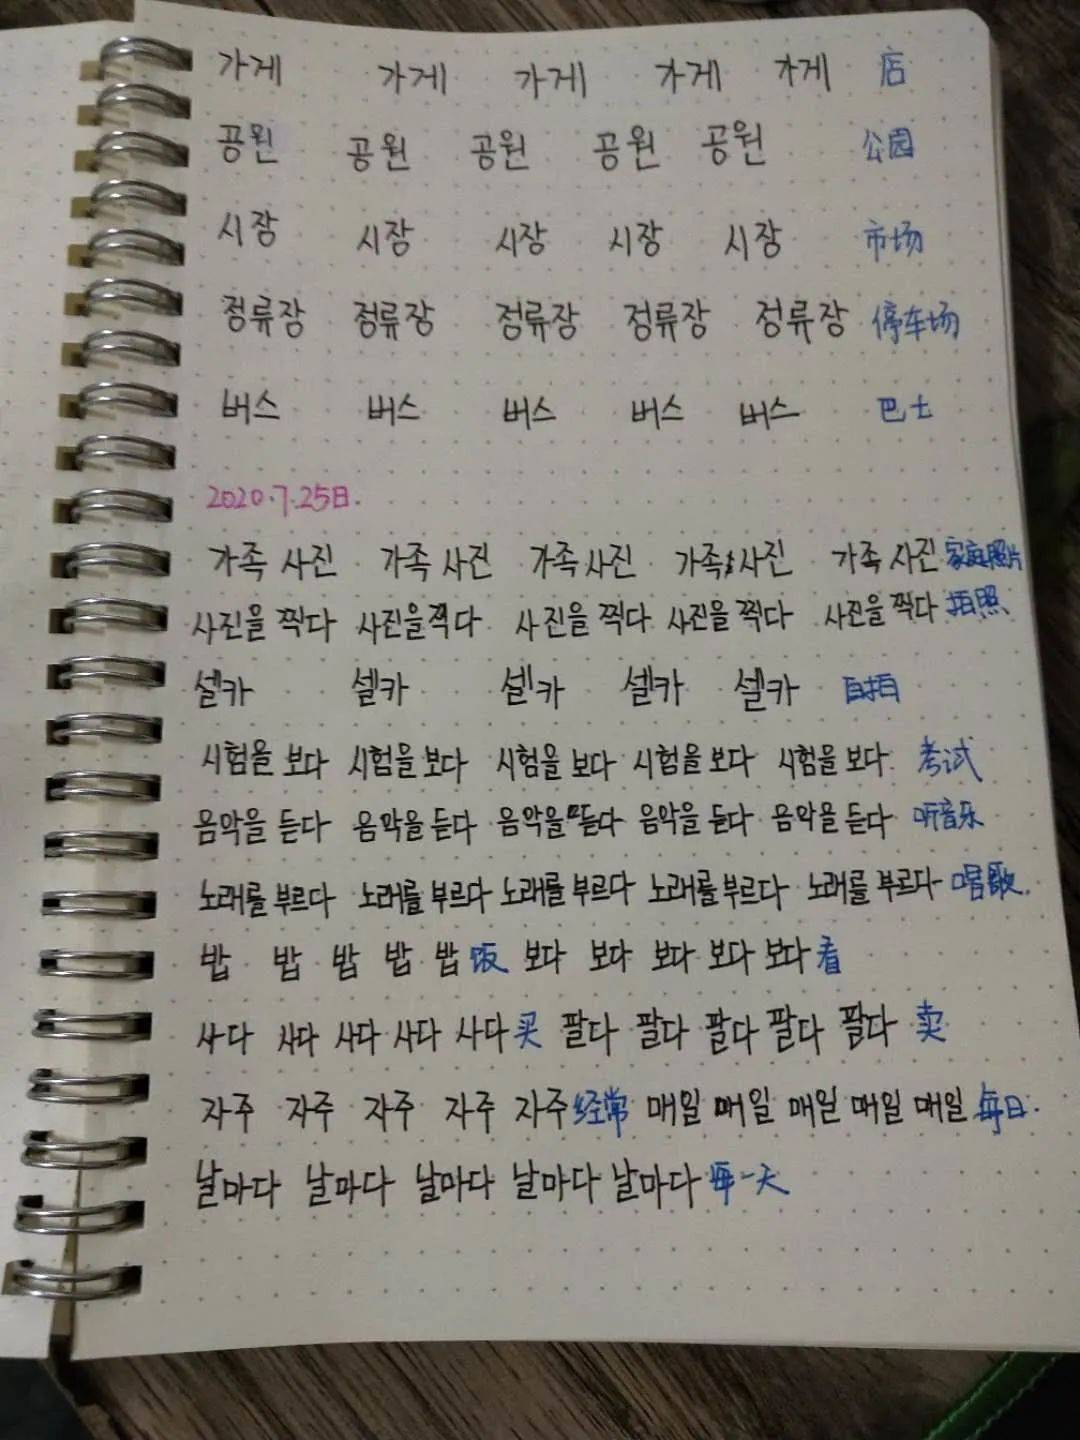 가게 가게 가게 가게 가게 店
공원 공원 공원 공원 공원 公园
시장 시장 시장 시장 시장 市场
정류장 정류장 정류장 정류장 정류장 停车场
버스 버스 버스 버스 버스 巴士
2020.7.25日.
가족 사진 가족 사진 가족 사진 가족 사진 가족 사진 家庭照片
사진을 찍다 사진을 찍다 사진을 찍다 사진을 찍다 사진을 찍다 拍照
셀카 셀카 셀카 셀카 셀카 自拍
시험을 보다 시험을 보다 시험을 보다 시험을 보다 시험을 보다 考试
음악을 듣다 음악을 듣다 음악을 듣다 음악을 듣다 음악을 듣다 听音乐
노래를 부르다 노래를 부르다 노래를 부르다 노래를 부르다 노래를 부르다 唱歌
밥 밥 밥 밥 밥 饭 보다 보다 보다 보다 보다 看
사다 사다 사다 사다 사다 买 팔다 팔다 팔다 팔다 팔다 卖
자주 자주 자주 자주 자주 经常 매일 매일 매일 매일 매일 每日.
날마다 날마다 날마다 날마다 날마다 每一天